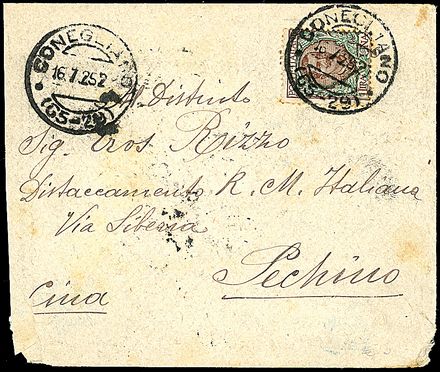 CONEGLIANO
16.7.25.2
(65-29)
CONEGLIANO
(65-29)
Al Distinto
Sig. Eros Rizzo
Distaccamento R. M. Italiana
Via Siberia
Pechino
Cina